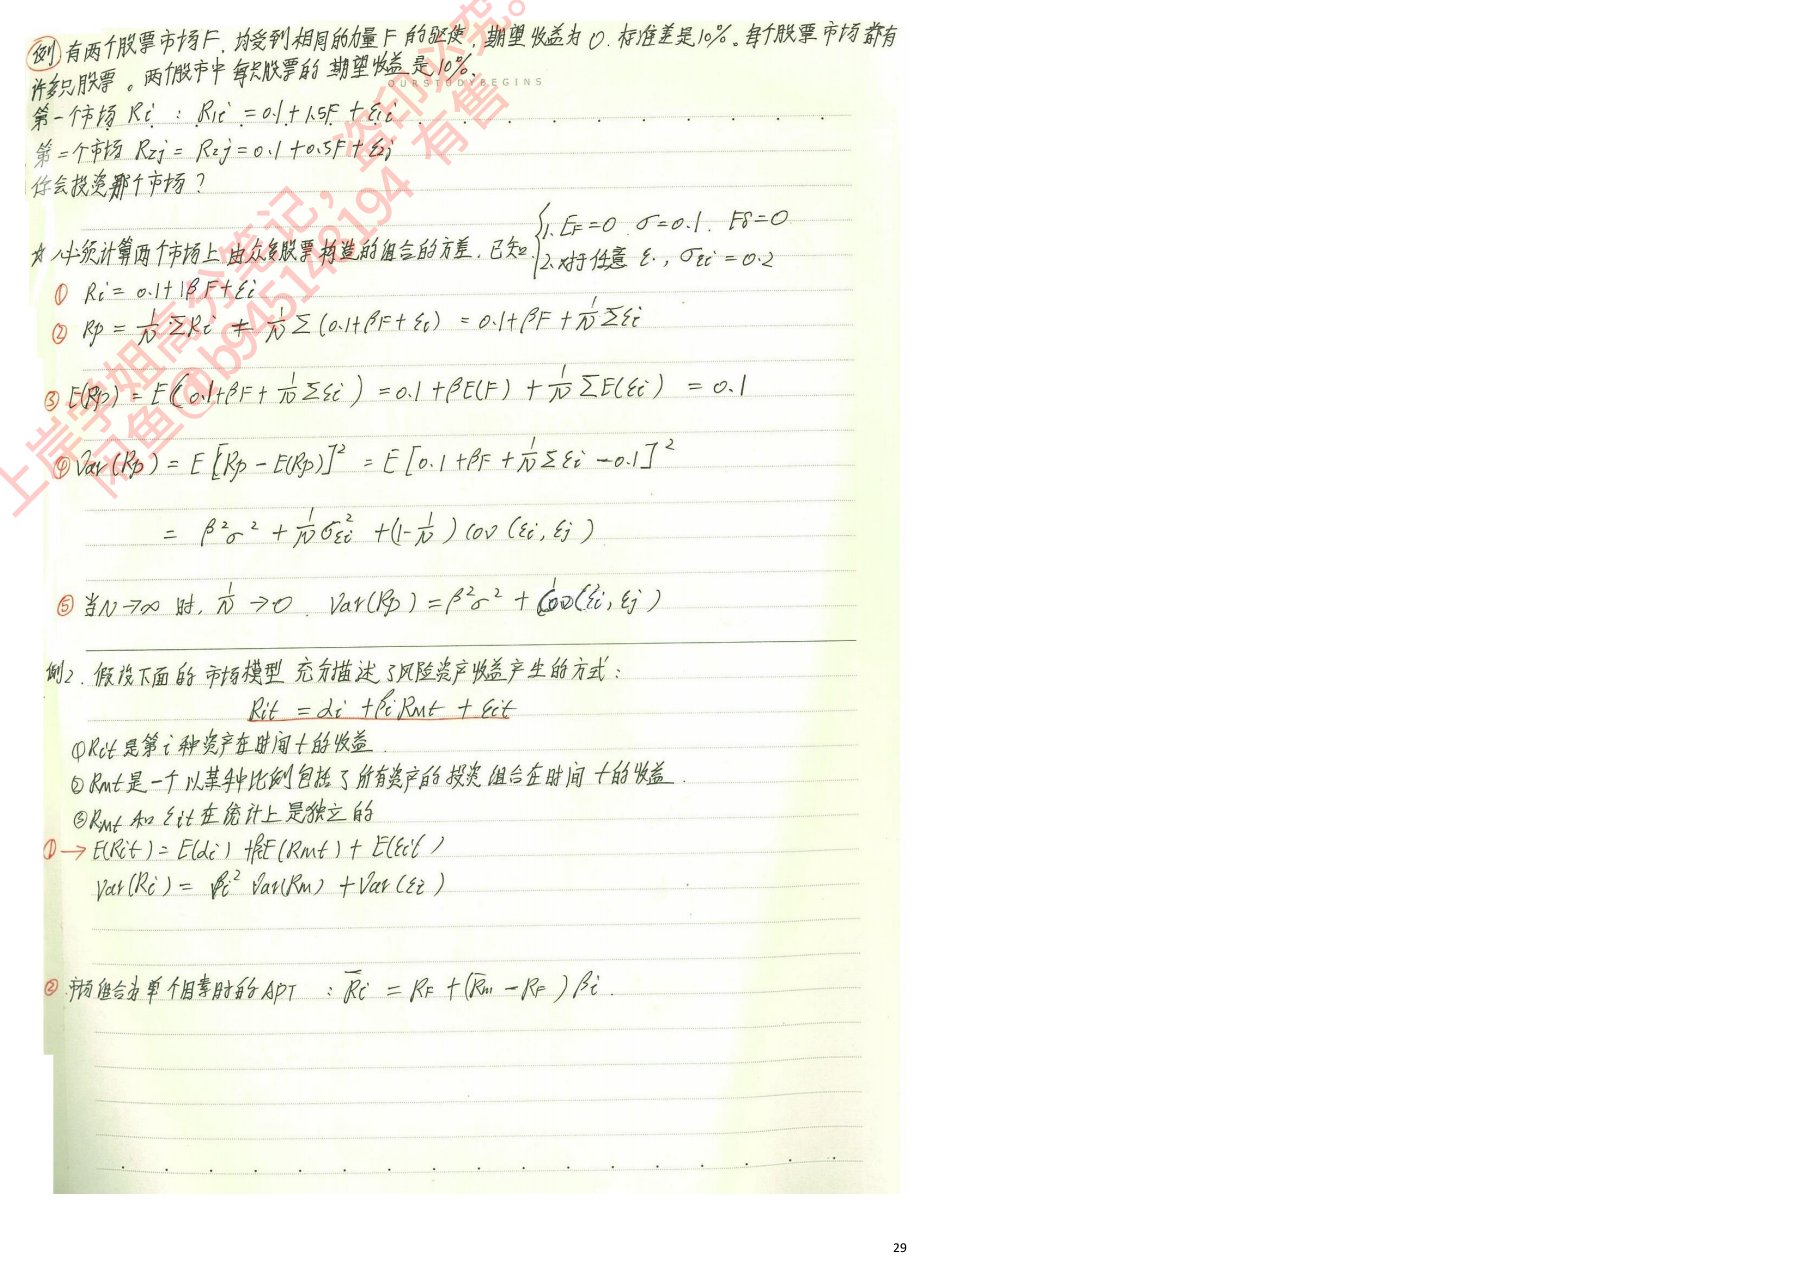 例 有两个股票市场F，均受到相同的力量F的驱使，期望收益为0，标准差是10%。每个股票市场都有
许多只股票。两个股市中每只股票的期望收益是10%。
OURSTUDYBEGINS
第一个市场 Ri : R1i = 0.1 + 1.5F + ε1i
第二个市场 R2j = R2j = 0.1 + 0.5F + ε2j
你会投资那个市场？
{1. EF = 0 σ = 0.1. Eδ = 0
☆ 必须计算两个市场上由众多股票构造的组合的方差，已知
2. 对于任意 ε., σεi = 0.2
① Ri = 0.1 + 1βF + εi
② Rp = 1/N ΣRi = 1/N Σ(0.1 + βF + εi) = 0.1 + βF + 1/N Σεi
③ E(Rp) = E(0.1 + βF + 1/N Σεi) = 0.1 + βE(F) + 1/N ΣE(εi) = 0.1
④ Var(Rp) = E[Rp - E(Rp)]² = E[0.1 + βF + 1/N Σεi - 0.1]²
= β²σ² + 1/N σ²εi + (1 - 1/N) cov(εi, εj)
⑤ 当N→∞时, 1/N → 0. Var(Rp) = β²σ² + Cov(εi, εj)
例2. 假设下面的市场模型充分描述了风险资产收益产生的方式：
Rit = αi + βiRMt + εit
①Rit是第i种资产在时间t的收益.
②Rmt是一个以某种比例包括了所有资产的投资组合在时间t的收益.
③RMt和εit在统计上是独立的
①→ E(Rit) = E(αi) + βiE(Rmt) + E(εit)
Var(Ri) = βi² Var(Rm) + Var(εi)
② 市场组合为单个因素时的APT : R̄i = RF + (R̄m - RF)βi.
上岸学姐高分笔记，盗印必究。
闲鱼@b945143194 有售
29